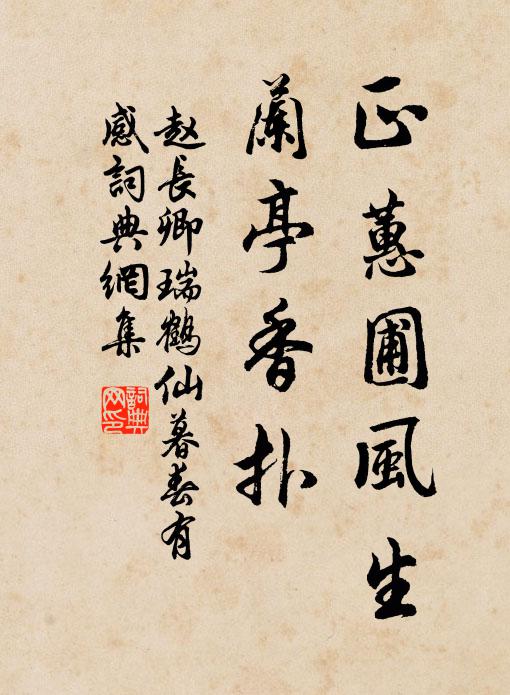 正蕙圃風生
蘭亭香扑
赵長卿瑞鶴仙暮春有
感詞典網集
詞典
网印